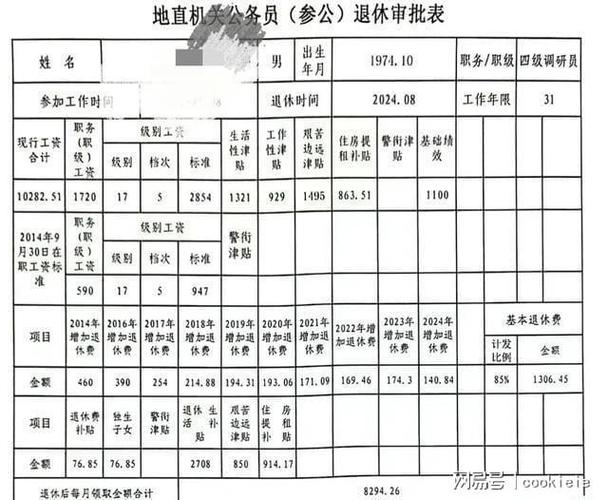 地直机关公务员（参公）退休审批表
姓 名 男 出生年月 1974.10 职务/职级 四级调研员
参加工作时间 退休时间 2024.08 工作年限 31
现行工资合计 职务(职级)工资 级别工资 生活性津贴 工作性津贴 艰苦边远津贴 住房提租补贴 警衔津贴 基础绩效
级别 档次 标准
10282.51 1720 17 5 2854 1321 929 1495 863.51 1100
2014年9月30日在职工资标准 职务(职级)工资 级别工资 警衔津贴
级别 档次 标准
590 17 5 947
项目 2014年增加退休费 2016年增加退休费 2017年增加退休费 2018年增加退休费 2019年增加退休费 2020年增加退休费 2021年增加退休费 2022年增加退休费 2023年增加退休费 2024年增加退休费 基本退休费
计发比例 金额
金额 460 390 254 214.88 194.31 193.06 171.09 169.46 174.3 140.84 85% 1306.45
项目 退休费补贴 独生子女 警衔津贴 退休生活补贴 艰苦边远津贴 住房提租补贴
金额 76.85 76.85 2708 850 914.17
退休后每月领取金额合计 8294.26
网易号 | cookieie